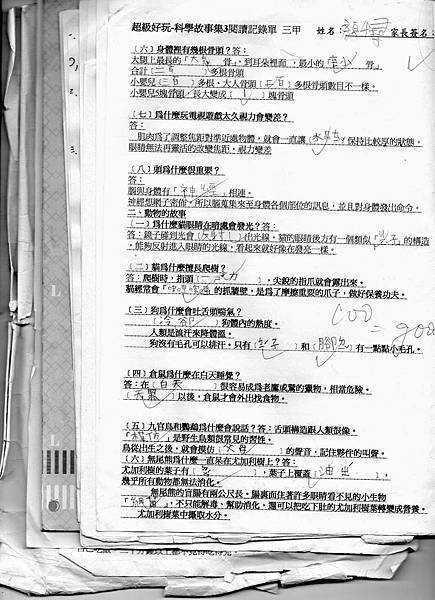 超級好玩-科學故事集3閱讀記錄單 三甲 姓名: 家長簽名:
(六)身體裡有幾根骨頭?答:
大腿上最長的「大 骨」,到耳朵裡面,最小的「 骨」
合計(二百)多根骨頭
小嬰兒(三百)多根,大人骨頭(二百)多根骨頭數目不一樣。
小嬰兒5塊骨頭,長大變成(1)塊骨頭
(七)為什麼玩電視遊戲太久視力會變差?
答:
肌肉為了調整焦距對準近處物體,就會一直讓(水晶體)保持比較厚的狀態。
眼睛無法再靈活的改變焦距,視力變差
(八)頭為什麼很重要?
答:
腦與身體有「神經」相連。
神經想網子密佈,所以腦蒐集來至身體各個部位的訊息,並且對身體發出命令。
二、動物的故事
(一)為什麼貓眼睛在暗處會發光?答:
答:鏡子碰到光會(反射)出光線。貓的眼睛後方有一個類似「鏡子」的構造
,能夠反射進入眼睛的光線,看起來就好像在發亮一樣。
(二)貓為什麼擅長爬樹?
答:爬樹時,指頭(用力),尖銳的指爪就會露出來。
貓經常會「 」的抓牆壁,是為了摩擦重要的爪子,做好保養功夫。
(三)狗為什麼會吐舌頭喘氣?
(冷卻)狗體內的熱度。
人類是流汗來降體溫。
狗沒有毛孔可以排汗,只有(鼻子)和(腳底)有一點點小毛孔。
100
= good
(四)倉鼠為什麼在白天睡覺?
答:在(白天)很容易成為老鷹或鷲的獵物,相當危險。
(天黑)以後,倉鼠才會外出找食物。
(五)九官鳥和鸚鵡為什麼會說話?答:舌頭構造跟人類很像。
「模仿」是野生鳥類很常見的習性。
鳥從出生之後,就會模仿(父母)的聲音,記住夥伴的叫聲。
(六)無尾熊為什麼一直呆在尤加利樹上?答:
尤加利樹的葉子有(毒),葉子上覆蓋(油 ),
幾乎所有動物都無法消化。
無尾熊的盲腸有兩公尺長。腸裏面住著許多眼睛看不見的小生物
「細菌」,不只能解毒、幫助消化,還可以把吃下肚的尤加利樹葉轉變成營養。
尤加利葉中攝取水分。